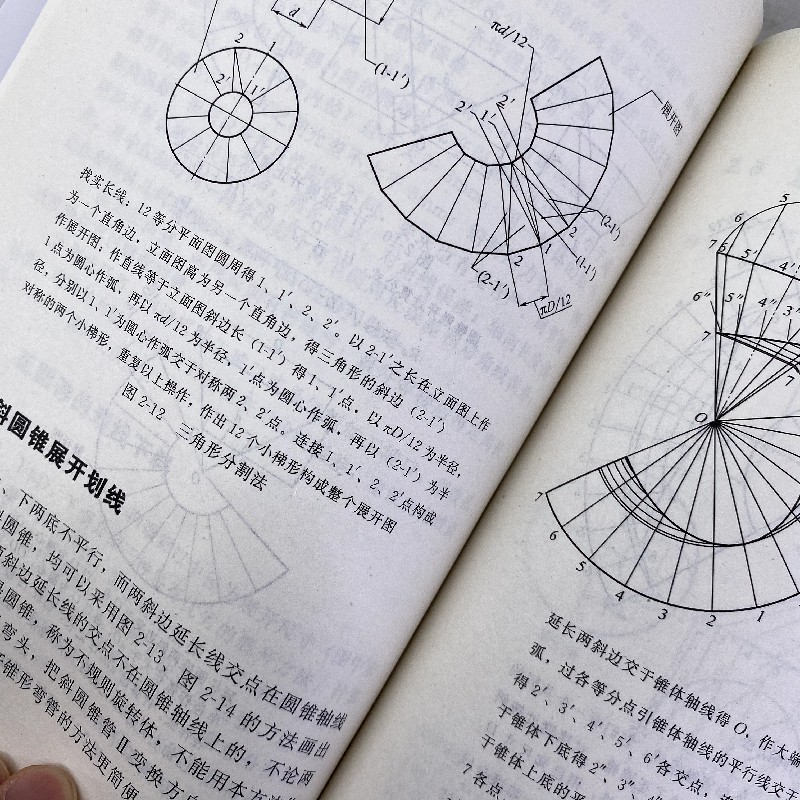 d
(1-1′)
2
1
2′
1′
πd/12
2′
2′
1′
展开图
2
1
2
(2-1′)
(1-1′)
(2-1′)
πD/12
找实长线：12等分平面图圆周得1、1′、2、2′。以2-1′之长在立面图上作
为一个直角边，立面图高为另一个直角边，得三角形的斜边（2-1′）
作展开图：作直线等于立面图斜边长（1-1′）得1、1′点，以πD/12为半径，
1点为圆心作弧，再以πd/12为半径，1′点为圆心作弧，再以（2-1′）为半
径，分别以1、1′为圆心作弧交于对称两2、2′点。连接1、1′、2、2′点构成
对称的两个小梯形，重复以上操作，作出12个小梯形构成整个展开图
图2-12 三角形分割法
斜圆锥展开划线
、下两底不平行，而两斜边延长线交点在圆锥轴线
斜圆锥，均可以采用图2-13，图2-14的方法画出
两斜边延长线的交点不在圆锥轴线上的，不论两
圆锥，称为不规则旋转体，不能用本方法
弯头，把斜圆锥管Ⅱ变换方向
锥形弯管的方法更简便
5
6
7
6
5
4′
6″
5″
4″
3″
7′
7
O
7
6
5
4
3
2
1
延长两斜边交于锥体轴线得O，作大端
弧，过各等分点引锥体轴线的平行线交于
得2′、3′、4′、5′、6′各交点，
于锥体下底得2″、3″、
于锥体上底的平
7各点，